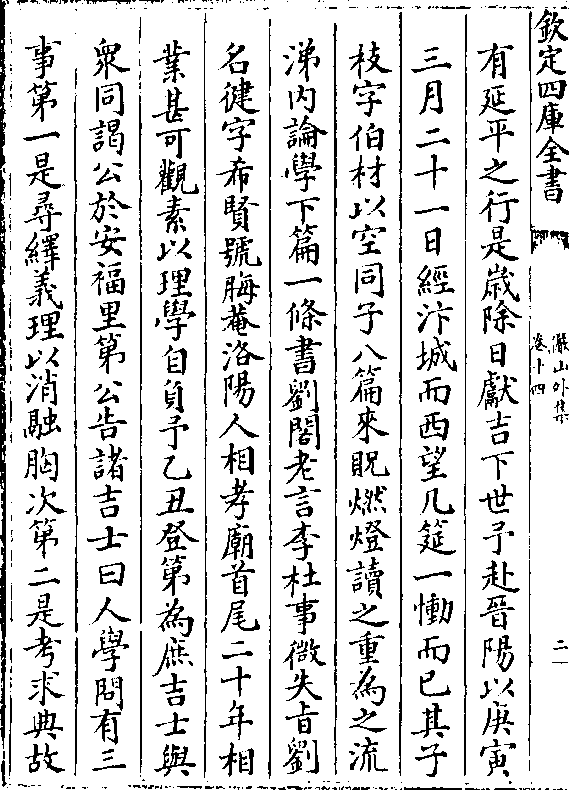 欽定四庫全書
儼山外集
卷十四
二
有延平之行是歲除日獻吉下世予赴晉陽以庚寅
三月二十一日經汴城而西望几筵一慟而已其子
枝字伯材以空同子八篇來貺燃燈讀之重為之流
涕内論學下篇一條書劉閣老言李杜事微失㫖劉
名健字希賢號晦菴洛陽人相孝廟首尾二十年相
業甚可觀素以理學自負予乙丑登第為庶吉士與
衆同謁公於安福里第公告諸吉士曰人學問有三
事第一是尋繹義理以消融胸次第二是考求典故